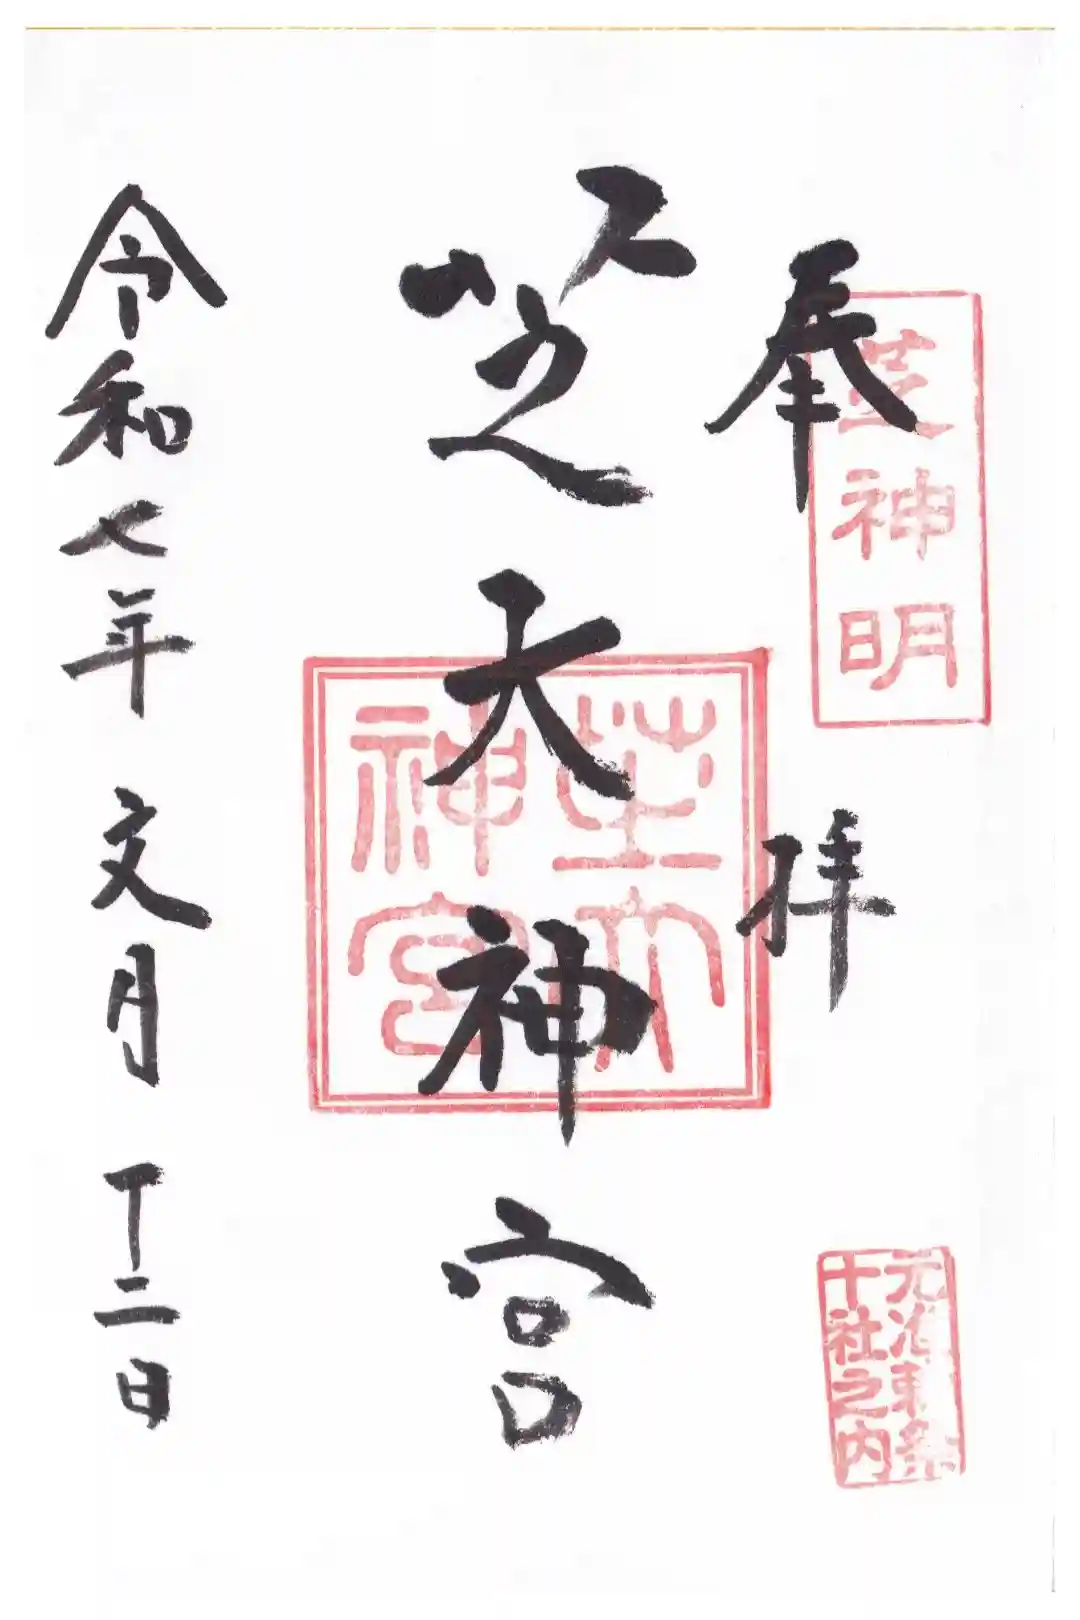 奉拝
芝神明
元准勅祭
十社之内
芝大神宮
芝大
神宮
令和七年 文月 十二日